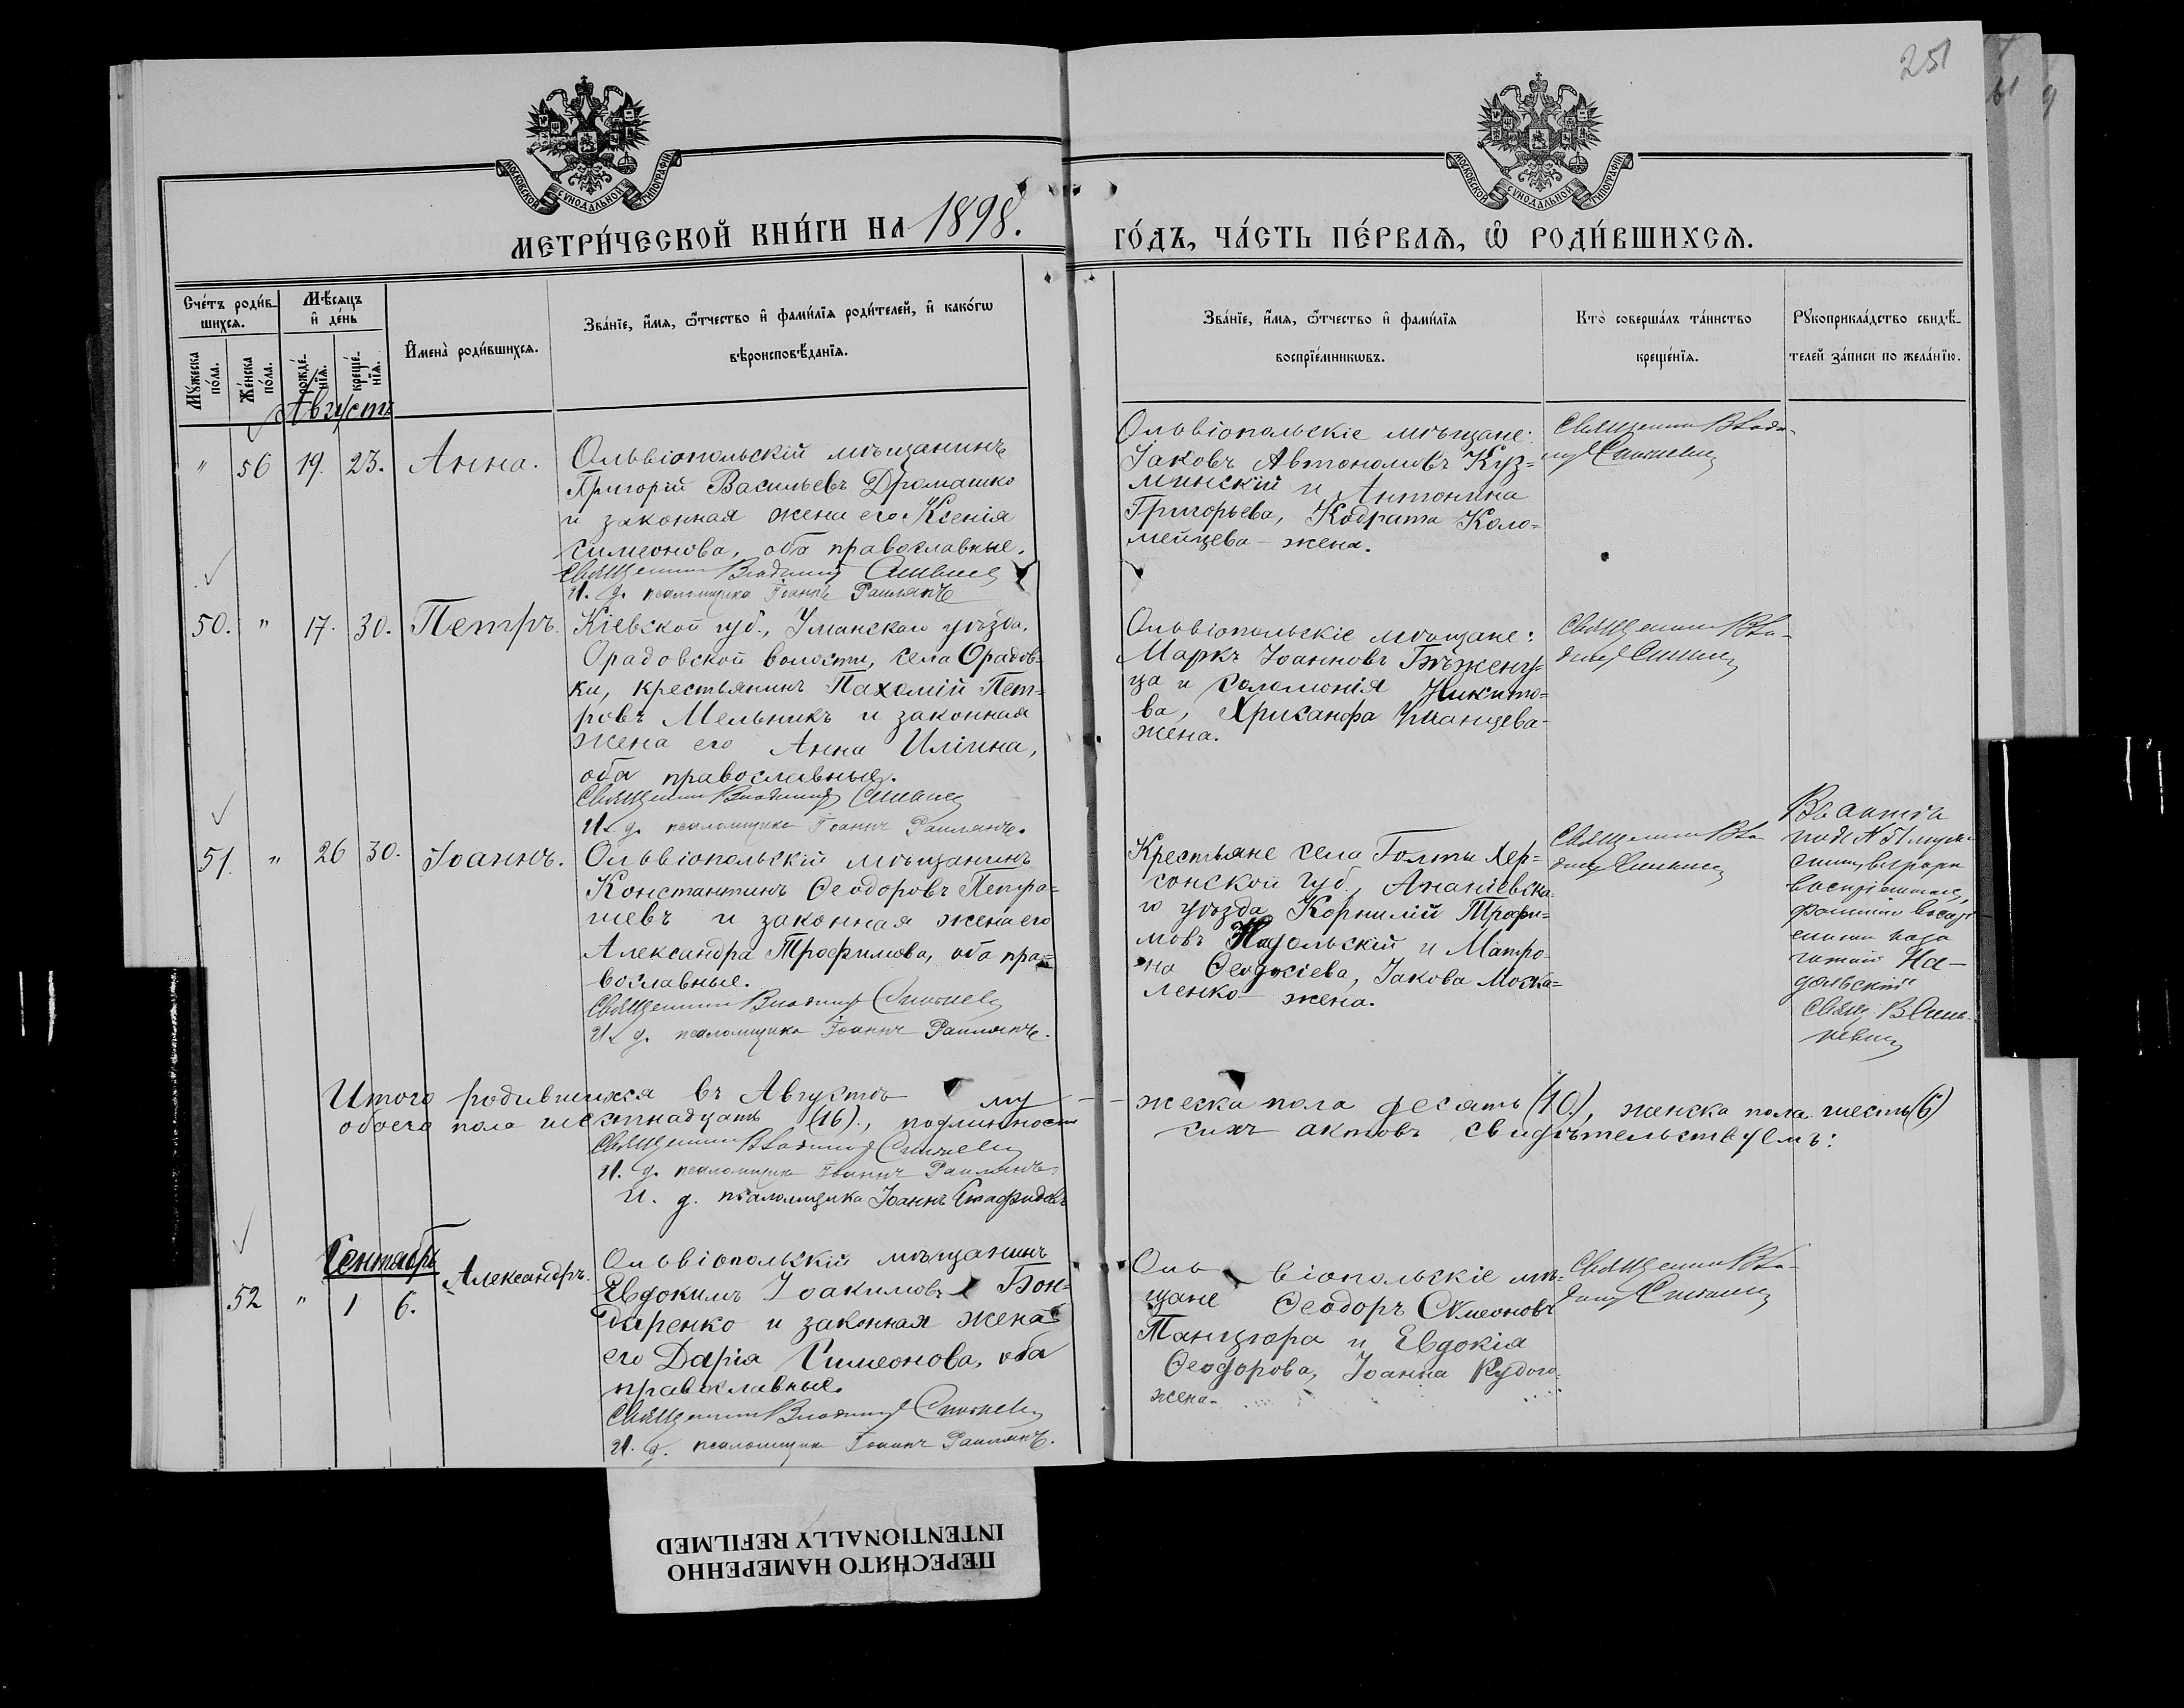 251
МОСКОВСКОЙ СУНОДАЛЬНОЙ ТИПОГРАФІИ
МОСКОВСКОЙ СУНОДАЛЬНОЙ ТИПОГРАФІИ
МЕТРИ́ЧЕСКОЙ КНИ́ГИ НА 1898.
ГО́ДЪ, ЧА́СТЬ ПЕ́РВАѦ, Ѡ҆ РОДИ́ВШИХСѦ.
Сче́тъ роди́в-
шихсѧ.
Мѣ́сѧцъ
и҆ де́нь
Мꙋ́жеска
по́ла.
Же́нска
по́ла.
рожде́-
нїѧ.
креще́-
нїѧ.
И҆мена̀ роди́вшихсѧ.
Зва́нїе, и҆́мѧ, ѻ҆́тчество и҆ фами́лїѧ роди́телей, и҆ како́гѡ
вѣроисповѣ́данїѧ.
Зва́нїе, и҆́мѧ, ѻ҆́тчество и҆ фами́лїѧ
воспрїе́мникѡвъ.
Кто̀ соверша́лъ та́инство
креще́нїѧ.
Рꙋкоприкла́дство свидѣ́-
телей за́писи по жела́нїю.
Августъ
" 56 19. 23. Анна.
Ольвіопольскій мѣщанинъ
Григорій Васильевъ Дромашко
и законная жена его Ксенія
Симеонова, оба православные.
Священникъ Владимір
И. д. псаломщика Іоаннъ
Ольвіопольскіе мѣщане:
Іаковъ Автономовъ Куз=
минскій и Антонина
Григорьева, Кодрата Коло=
мейцева - жена.
Священникъ Влади-
мір
50. " 17. 30. Петръ.
Кіевской губ., Уманскаго уѣзда,
Орадовской волости, села Орадов-
ки, крестьянинъ Пахомій Пет=
ровъ Мельникъ и законная
жена его Анна Иліина,
оба православные.
Священникъ Владимір
И. д. псаломщика Іоаннъ
Ольвіопольскіе мѣщане:
Маркъ Іоанновъ Бѣжену=
ца и Соломонія Никито=
ва, Хрисанфа Уманцева-
жена.
Священникъ Вла-
димір
51. " 26 30. Іоаннъ.
Ольвіопольскій мѣщанинъ
Константинъ Ѳеодоровъ Петра=
шевъ и законная жена его
Александра Трофимова, оба пра=
вославные.
Священникъ Владимір
И. д. псаломщика Іоаннъ
Крестьяне села Голты Хер=
сонской губ., Ананіевска-
го уѣзда Корнилій Трофи=
мовъ Надольскій и Матро-
на Ѳеодосіева, Іакова Моска=
ленко - жена.
Священникъ Вла-
димір
Въ актѣ
подъ № 51
въ графѣ
На-
дольскій
Итого родившихся въ Августѣ му-
жеска пола десять (10.), женска пола шесть (6)
обоего пола шестнадцать (16)., подлинность
сихъ актовъ свидѣтельствуемъ:
Священникъ Владимір
И. д. псаломщика Іоаннъ
И. д. псаломщика Іоаннъ Стафидовъ
Сентябрь
52 " 1 6. Александръ.
Ольвіопольскій мѣщанинъ
Евдокимъ Іоакимовъ Бон-
даренко и законная жена
его Дарія Симеонова, оба
православные.
Священникъ Владимір
И. д. псаломщика Іоаннъ
Оль віопольскіе мѣ-
щане Ѳеодоръ Симеоновъ
Танцюра и Евдокія
Ѳеодорова, Іоанна Рудого-
жена.
Священникъ Вла-
димір
ПЕРЕСНЯТО НАМЕРЕННО
INTENTIONALLY REFILMED